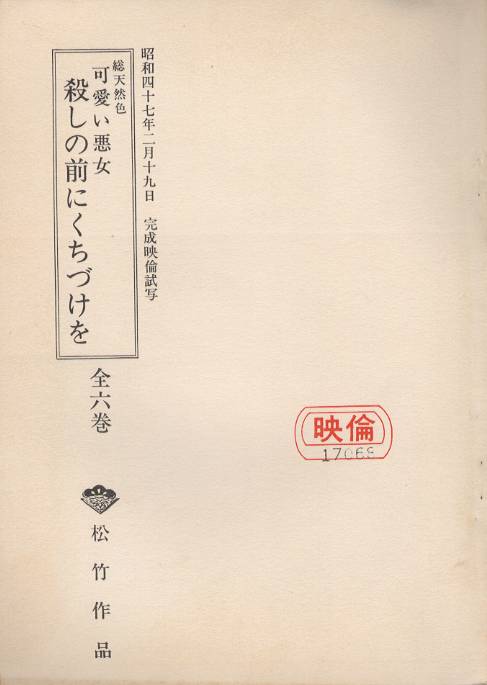 昭和四十七年二月十九日 完成映倫試写
総天然色
可愛い悪女
殺しの前にくちづけを
全六巻
松竹作品
映倫